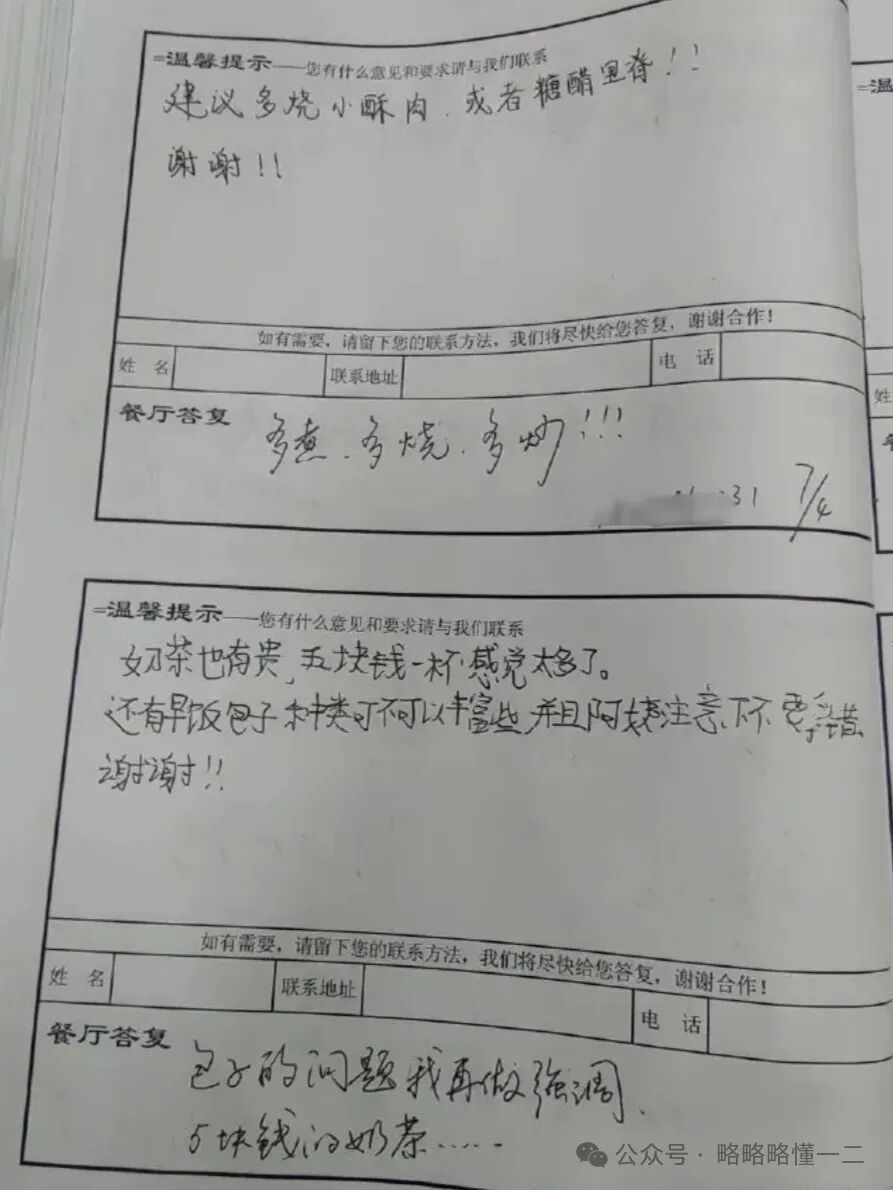 =温馨提示——您有什么意见和要求请与我们联系
建议多烧小酥肉、或者糖醋里脊!!
谢谢!!
如有需要，请留下您的联系方法，我们将尽快给您答复，谢谢合作！
姓 名 联系地址 电 话
餐厅答复
多煮、多烧、多炒!!!
31 7/4
=温馨提示——您有什么意见和要求请与我们联系
奶茶也有贵，五块钱一杯感觉太多了。
还有早饭包子种类可不可以丰富些，并且阿姨注意下不要弄错
谢谢!!
如有需要，请留下您的联系方法，我们将尽快给您答复，谢谢合作！
姓 名 联系地址 电 话
餐厅答复
包子的问题我再做强调、
5块钱的奶茶……
=温
姓
公众号·略略略懂一二